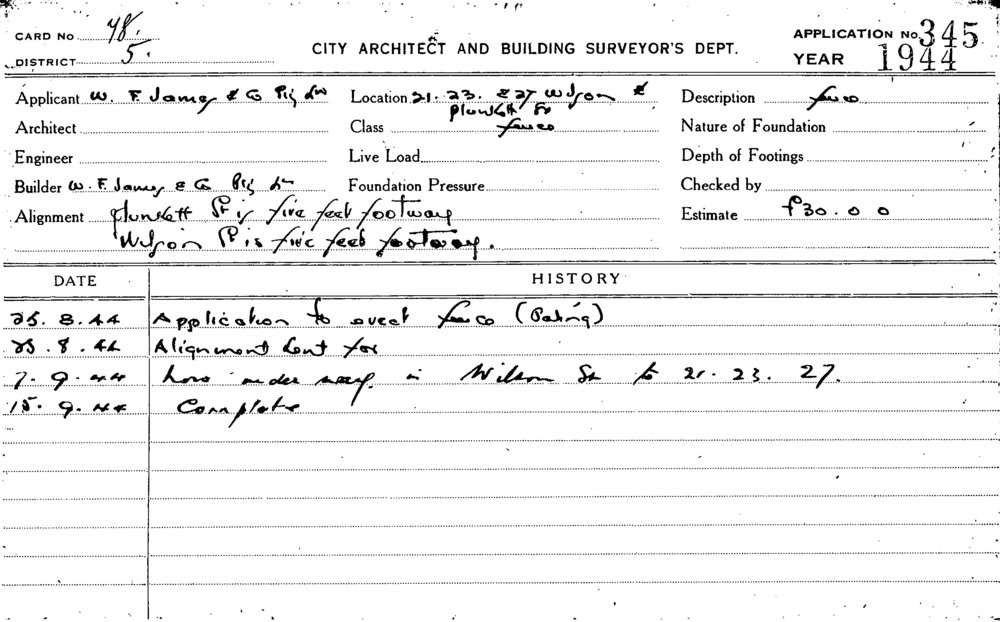 CARD No 78.
DISTRICT 5.
CITY ARCHITECT AND BUILDING SURVEYOR'S DEPT.
APPLICATION No. 345
YEAR 1944
Applicant W. F. James & Co Pty Ltd
Location 21. 23. & 27 Wilson &
Plunkett St
Description fence
Architect
Class fence
Nature of Foundation
Engineer
Live Load
Depth of Footings
Builder W. F. James & Co Pty Ltd
Foundation Pressure
Checked by
Alignment Plunkett St is five feet footway
Wilson St is five feet footway.
Estimate £30. 0 0
DATE HISTORY
25. 8. 44 Application to erect fence (Paling)
25. 8. 44 Alignment sent for
7. 9. 44 in Wilson St to 21. 23. 27.
15. 9. 44 Complete